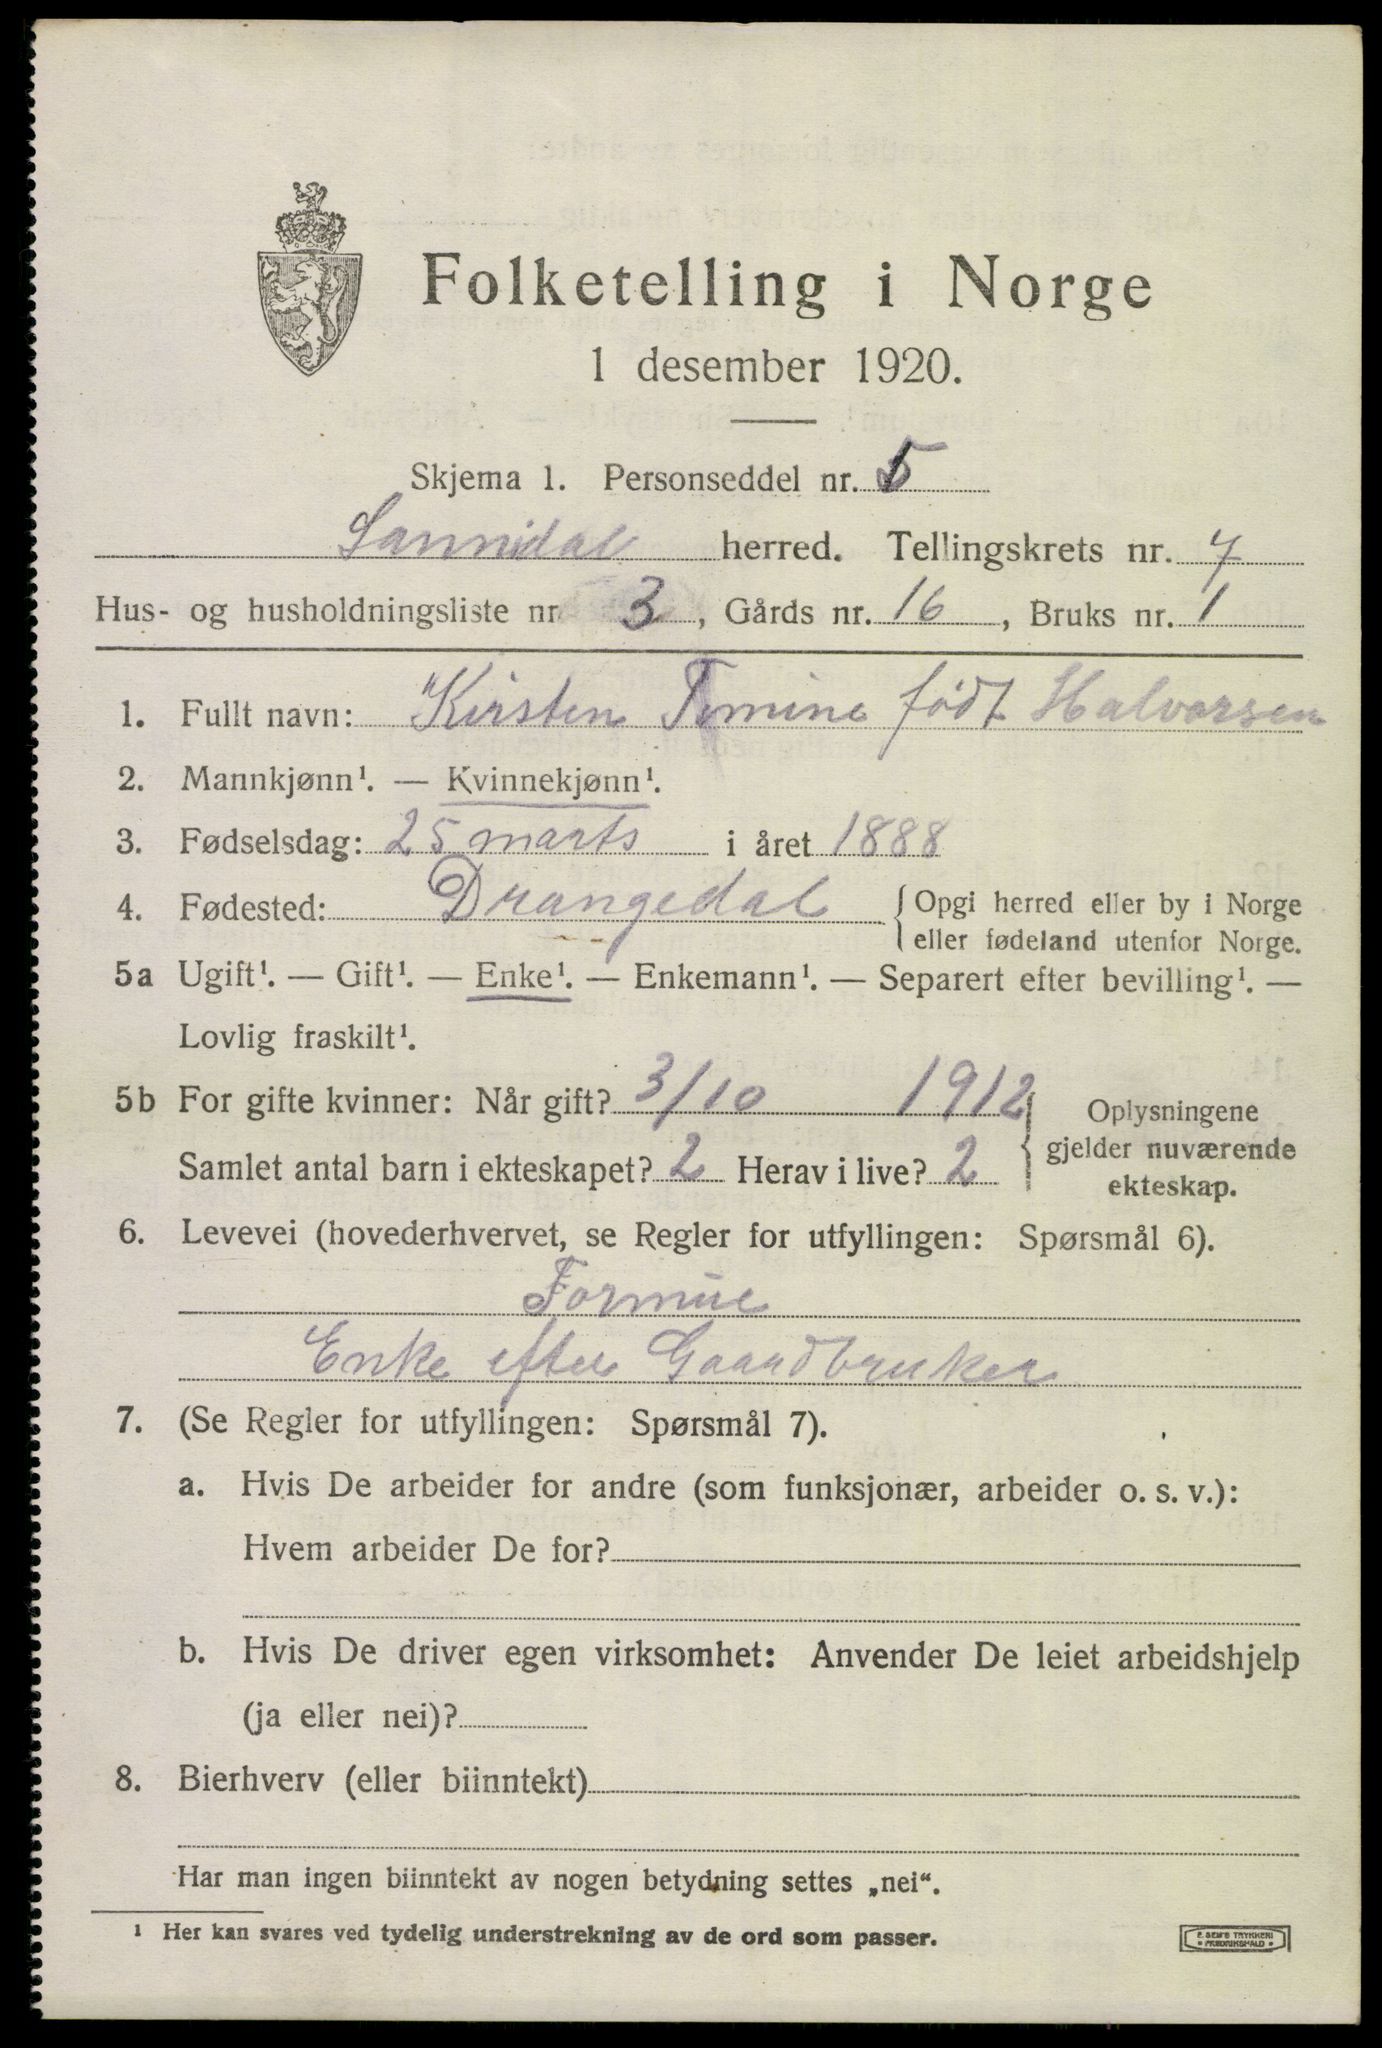 Folketelling i Norge
1 desember 1920.
Skjema 1. Personseddel nr. 5
Sannidal herred. Tellingskrets nr. 7
Hus- og husholdningsliste nr 3, Gårds nr. 16, Bruks nr. 1
1. Fullt navn: Kirsten født Halvorsen
2. Mannkjønn¹. — Kvinnekjønn¹.
3. Fødselsdag: 25 marts i året 1888
4. Fødested: Drangedal { Opgi herred eller by i Norge
eller fødeland utenfor Norge.
5a Ugift¹. — Gift¹. — Enke¹. — Enkemann¹. — Separert efter bevilling¹. —
Lovlig fraskilt¹.
5b For gifte kvinner: Når gift? 3/10 1912
Samlet antal barn i ekteskapet? 2 Herav i live? 2
Oplysningene
gjelder nuværende
ekteskap.
6. Levevei (hovederhvervet, se Regler for utfyllingen: Spørsmål 6).
Formue
Enke efter Gaardbruker
7. (Se Regler for utfyllingen: Spørsmål 7).
a. Hvis De arbeider for andre (som funksjonær, arbeider o. s. v.):
Hvem arbeider De for?
b. Hvis De driver egen virksomhet: Anvender De leiet arbeidshjelp
(ja eller nei)?
8. Bierhverv (eller biinntekt)
Har man ingen biinntekt av nogen betydning settes „nei“.
¹ Her kan svares ved tydelig understrekning av de ord som passer.
E. SEM'S TRYKKERI
• FREDRIKSHALD •